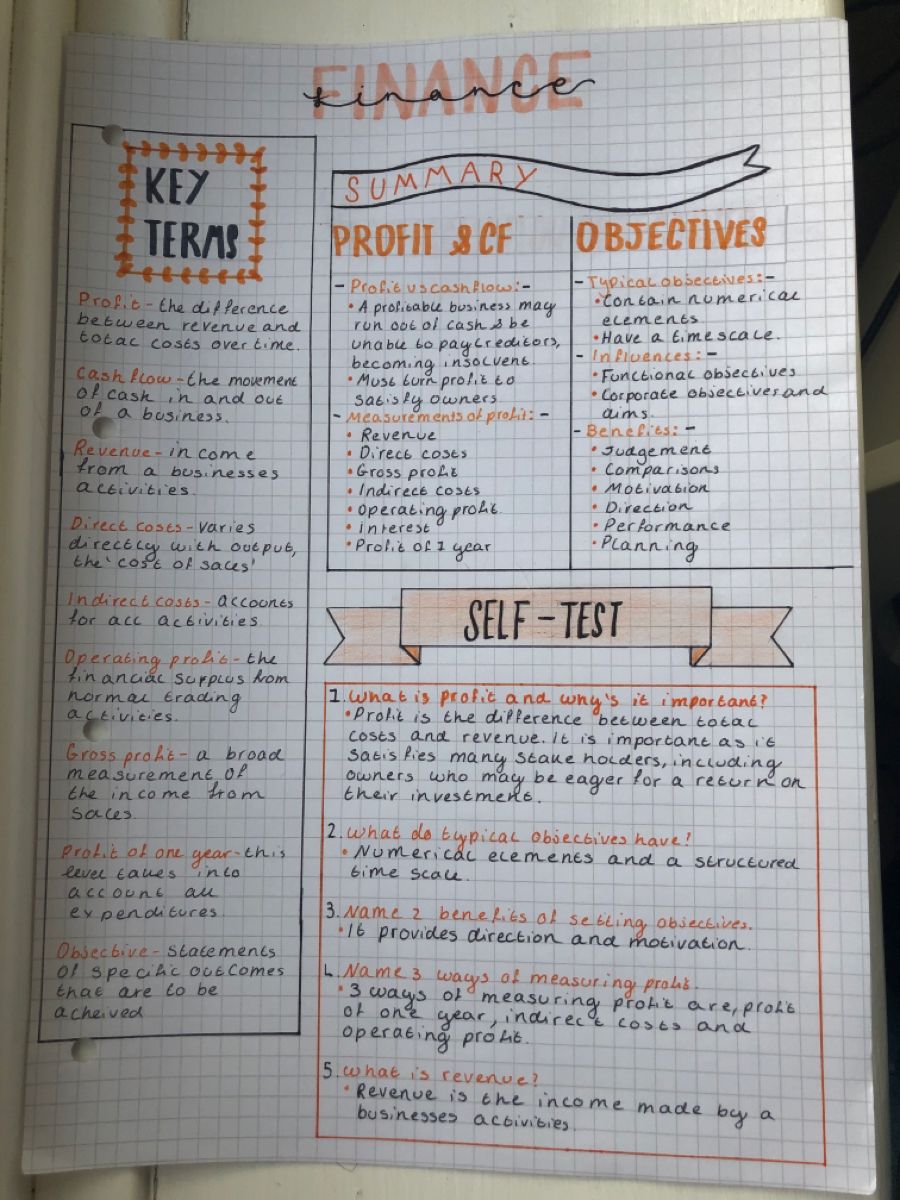 FINANCE
finance
KEY
TERMS
Profit - the difference
between revenue and
total costs over time.
Cash flow - the movement
of cash in and out
of a business.
Revenue - income
from a businesses
activities.
Direct costs - varies
directly with output,
the 'cost of sales'
Indirect costs - accounts
for all activities
Operating profit - the
financial surplus from
normal trading
activities.
Gross profit - a broad
measurement of
the income from
sales.
Profit of one year - this
level takes into
account all
expenditures.
Objective - statements
of specific outcomes
that are to be
acheived
SUMMARY
PROFIT & CF
- Profit vs cashflow: -
• A profitable business may
run out of cash & be
unable to pay creditors,
becoming insolvent.
• Must turn profit to
satisfy owners
- Measurements of profit: -
• Revenue
• Direct costs
• Gross profit
• Indirect costs
• Operating profit
• interest
• Profit of 1 year
OBJECTIVES
- Typical objectives: -
• Contain numerical
elements
• Have a timescale.
- Influences: -
• Functional objectives
• Corporate objectives and
aims.
- Benefits: -
• Judgement
• Comparisons
• Motivation
• Direction
• Performance
• Planning
SELF - TEST
1. What is profit and why's it important?
• Profit is the difference between total
costs and revenue. It is important as it
satisfies many stake holders, including
owners who may be eager for a return on
their investment.
2. What do typical objectives have?
• Numerical elements and a structured
time scale.
3. Name 2 benefits of setting objectives.
• It provides direction and motivation.
4. Name 3 ways of measuring profit.
• 3 ways of measuring profit are, profit
of one year, indirect costs and
operating profit.
5. What is revenue?
• Revenue is the income made by a
businesses activities.